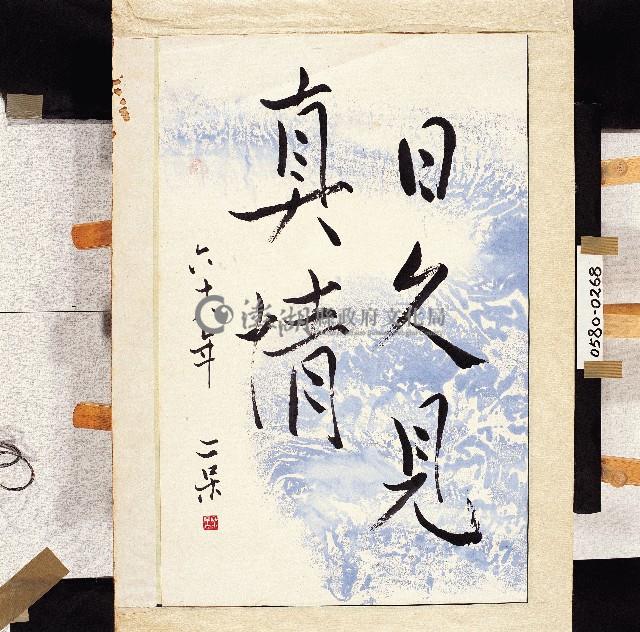 日久見
真情
六十年
二呆
澎湖縣政府文化局
0580-0268